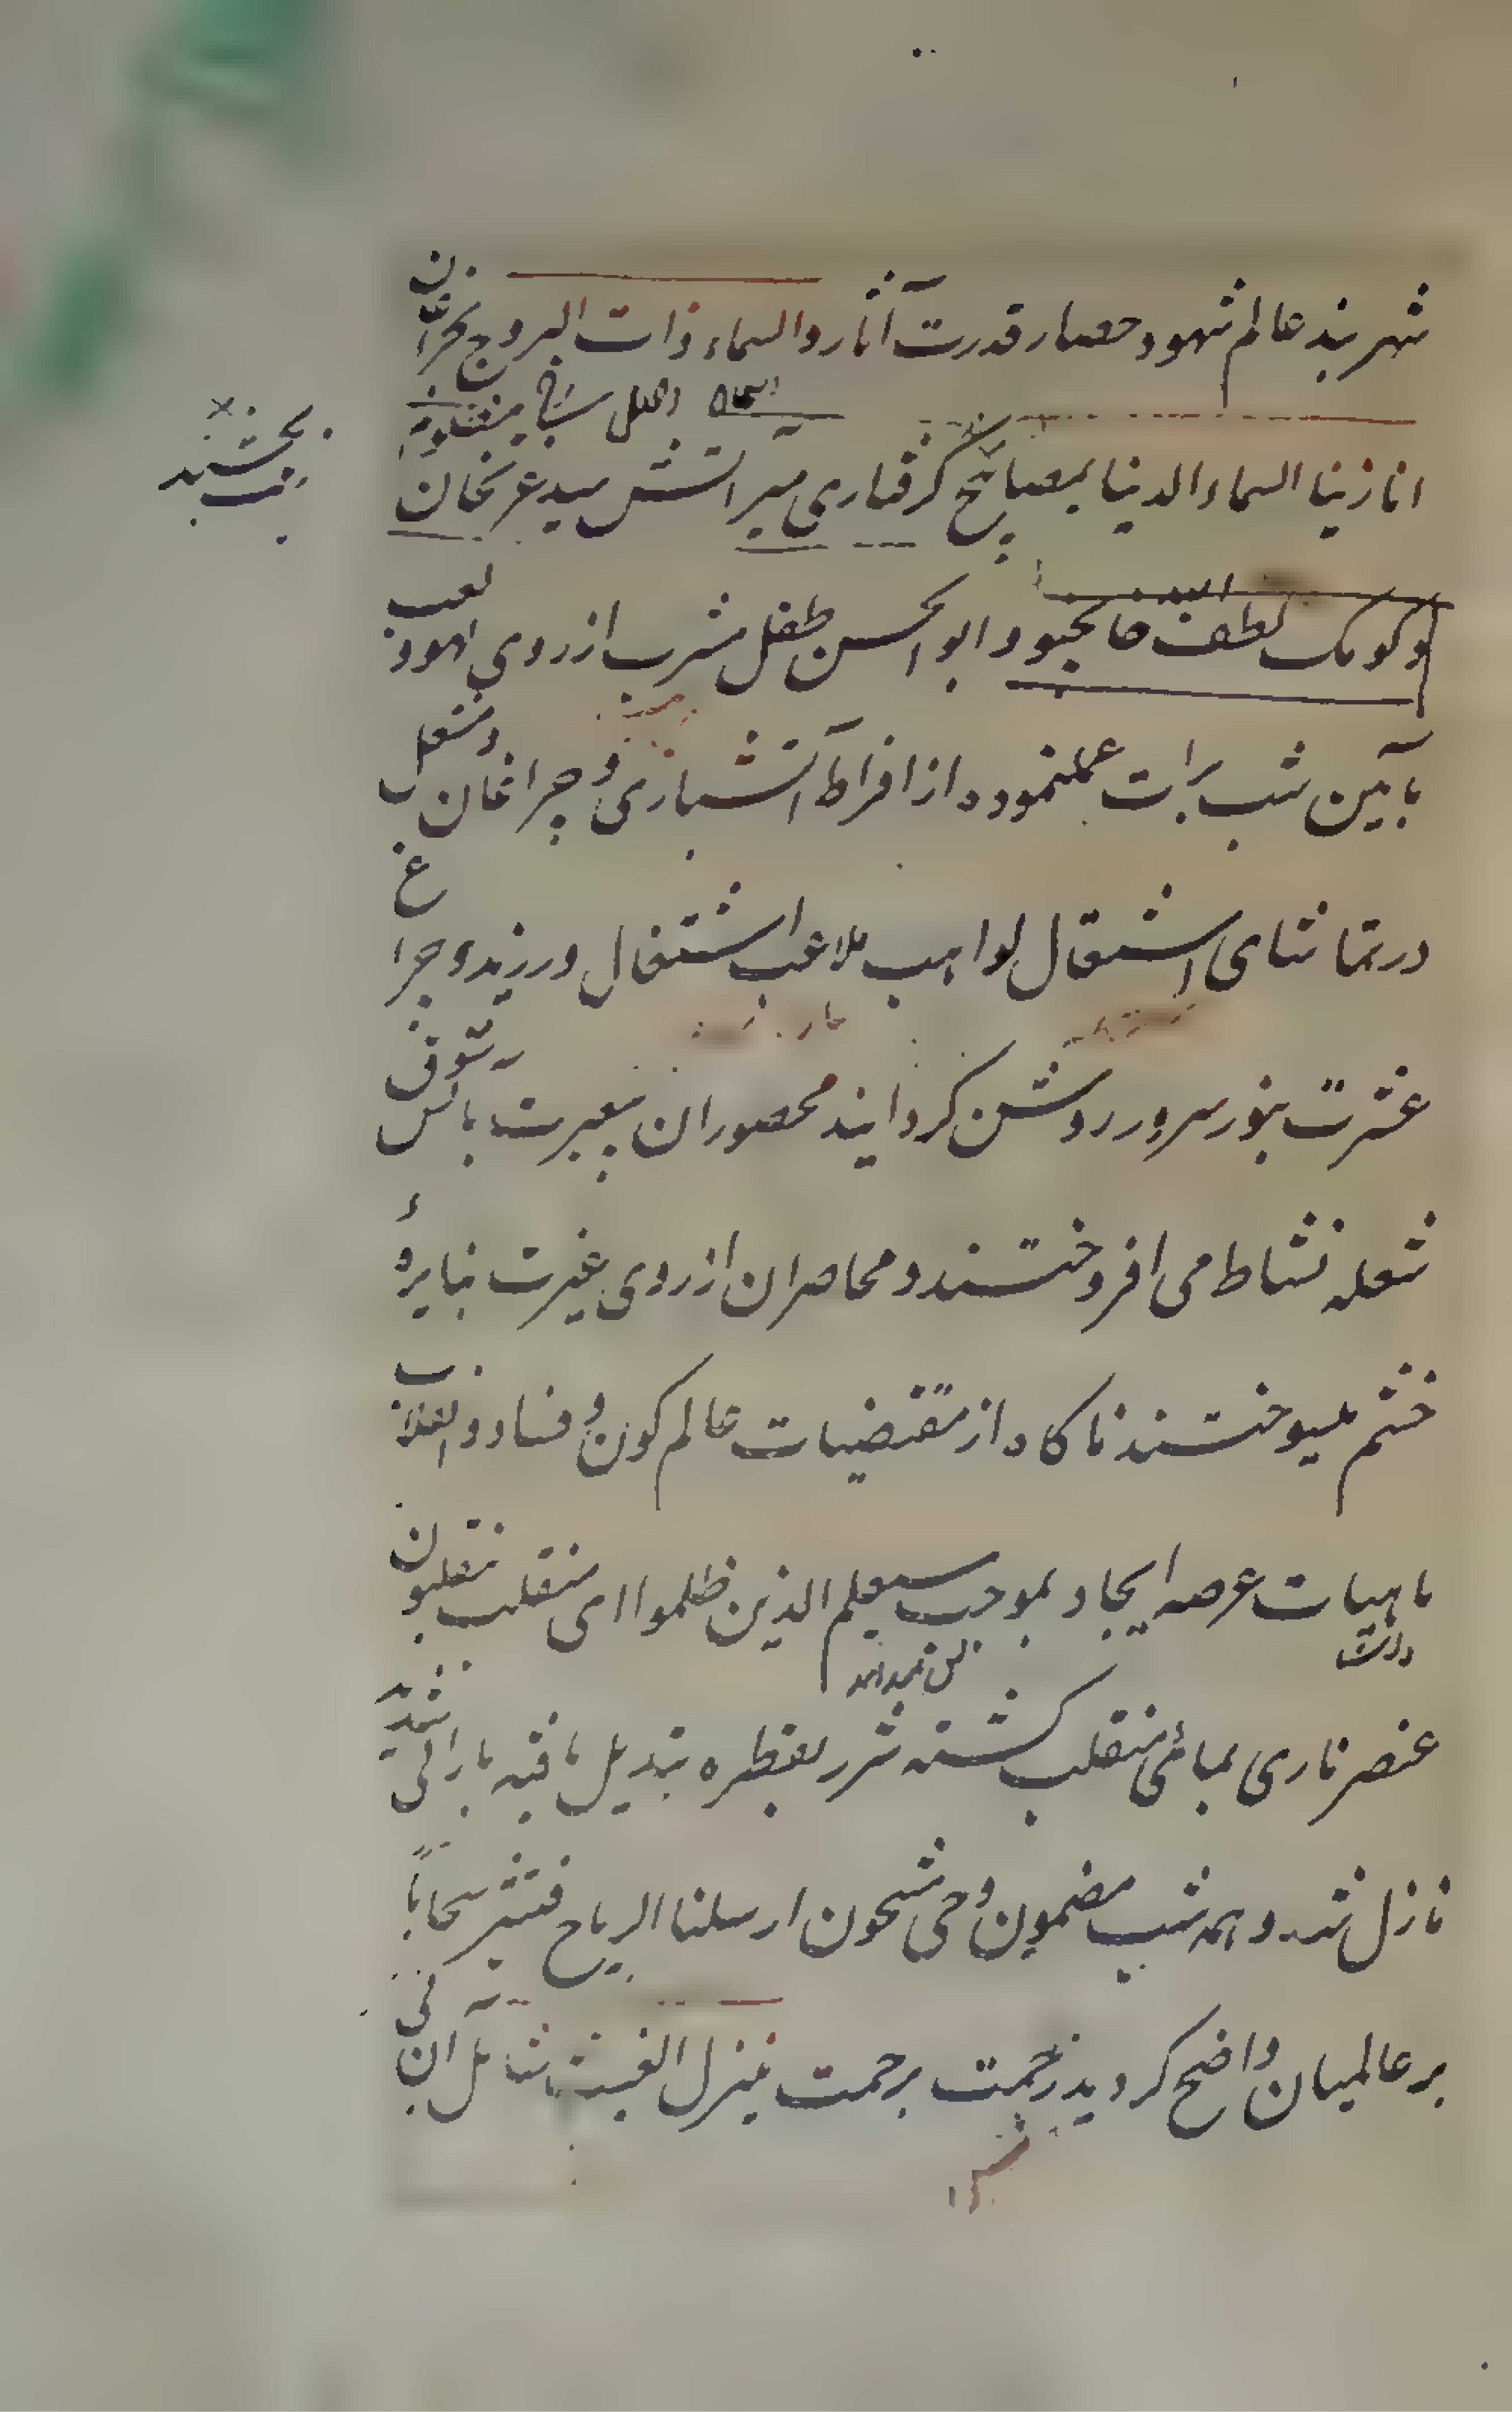 شهر بند عالم شهود حصار قدرت آثار والسماء ذات البروج
انا زینا السماء الدنیا بمصابیح گرفتاری میر آتش سید عزتخان
و کومک لطف الله خان بخبود ابوالحسن طفل مشرب از روی لهو و لعب
بآیین شب برات عملنموده از افراط آتشبازی و چراغان و مشعل
در تماشای اشتعال لواهب ملاعب اشتغال ورزید و چراغ
عشرت بنور سرور روشن کردانید محصوران بعبرت باتش شوق
شعله نشاط می افروختند و محاصران از روی غیرت بنایرهٔ
خشم میسوختند ناکاه از مقتضیات عالم کون و فساد و انقلاب
ماهیات عرصه ایجاد بموجب سیعلم الذین ظلموا ای منقلب ینقلبون
عنصر ناری بمائی منقلب کشته شرر بقطره تبدیل یافته بارانی شدید
نازل شد و همه شب مضمون وحی مشحون ارسلنا الریاح فتثیر سحاباً
بر عالمیان واضح کردید زحمت برحمت ینزل الغیث شامل آن